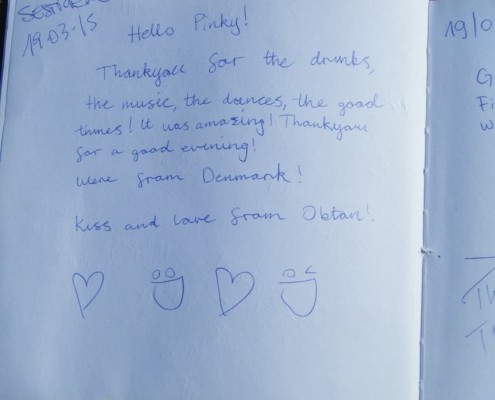 19.03-15
Hello Pinky!
Thankyou for the drinks,
the music, the dances, the good
times! It was amazing! Thankyou
for a good evening!
Were from Denmark!
Kiss and love from Obtan!
19/0
G
Fi
W
Th
T